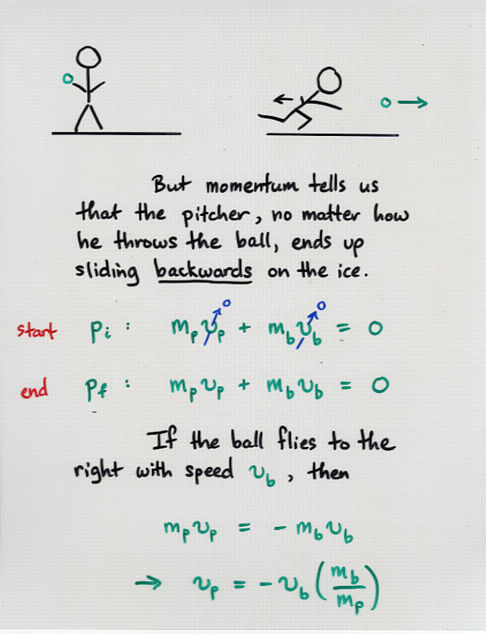 But momentum tells us
that the pitcher, no matter how
he throws the ball, ends up
sliding backwards on the ice.
start pᵢ : mₚvₚ⁰ + m_b v_b⁰ = 0
end p_f : mₚvₚ + m_b v_b = 0
If the ball flies to the
right with speed v_b, then
mₚvₚ = - m_b v_b
→ vₚ = - v_b (m_b/mₚ)